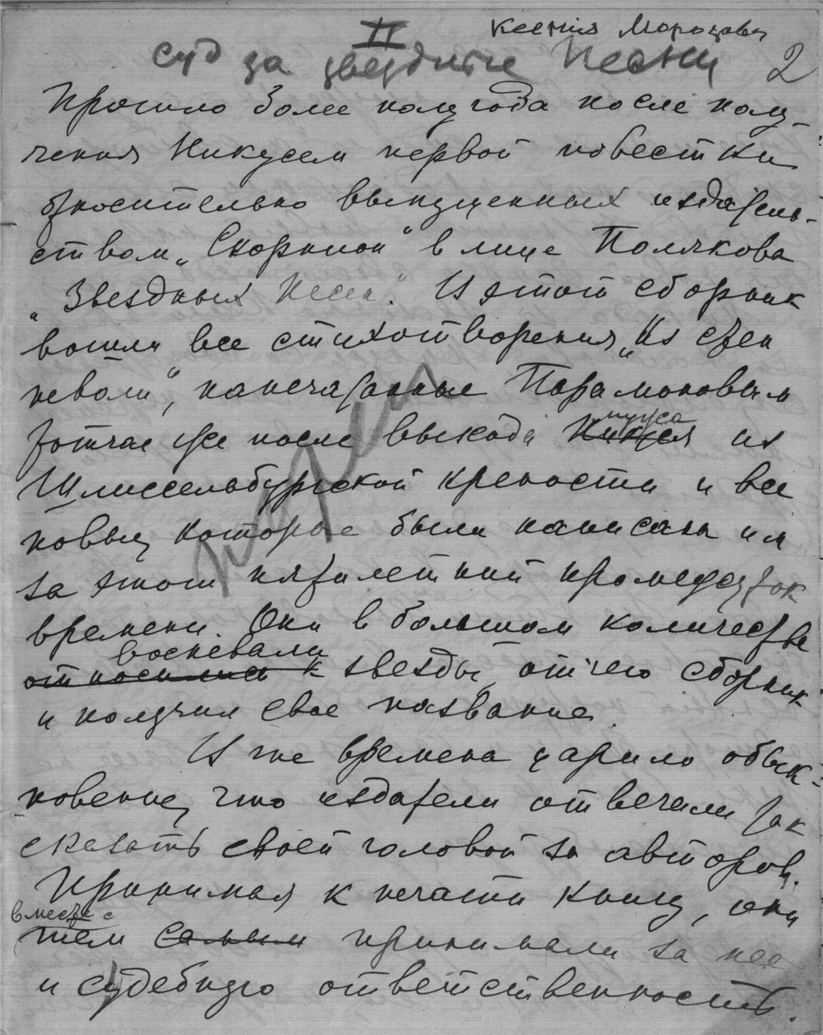 Ксения Морозова
II
2
Суд за звездные песни
Прошло более полугода после полу-
чения Никусем первой повестки
относительно выпущенных издатель-
ством „Скорпион" в лице Полякова
„Звездных Песен". В этот сборник
вошли все стихотворения „Из стен
неволи", напечатанные Парамоновым
тотчас же после выхода Никуся мужа из
Шлиссельбургской крепости и все
новые, которые были написаны им
за этот пятилетний промежуток
времени. Они в большом количестве
воспевали
относились к звезды, отчего сборник
и получил свое название.
В те времена царило обык-
новение, что издатели отвечали так
сказать своей головой за авторов.
Принимая к печати книгу, они
вместе с
тем самым принимали за нее
и судебную ответственность.